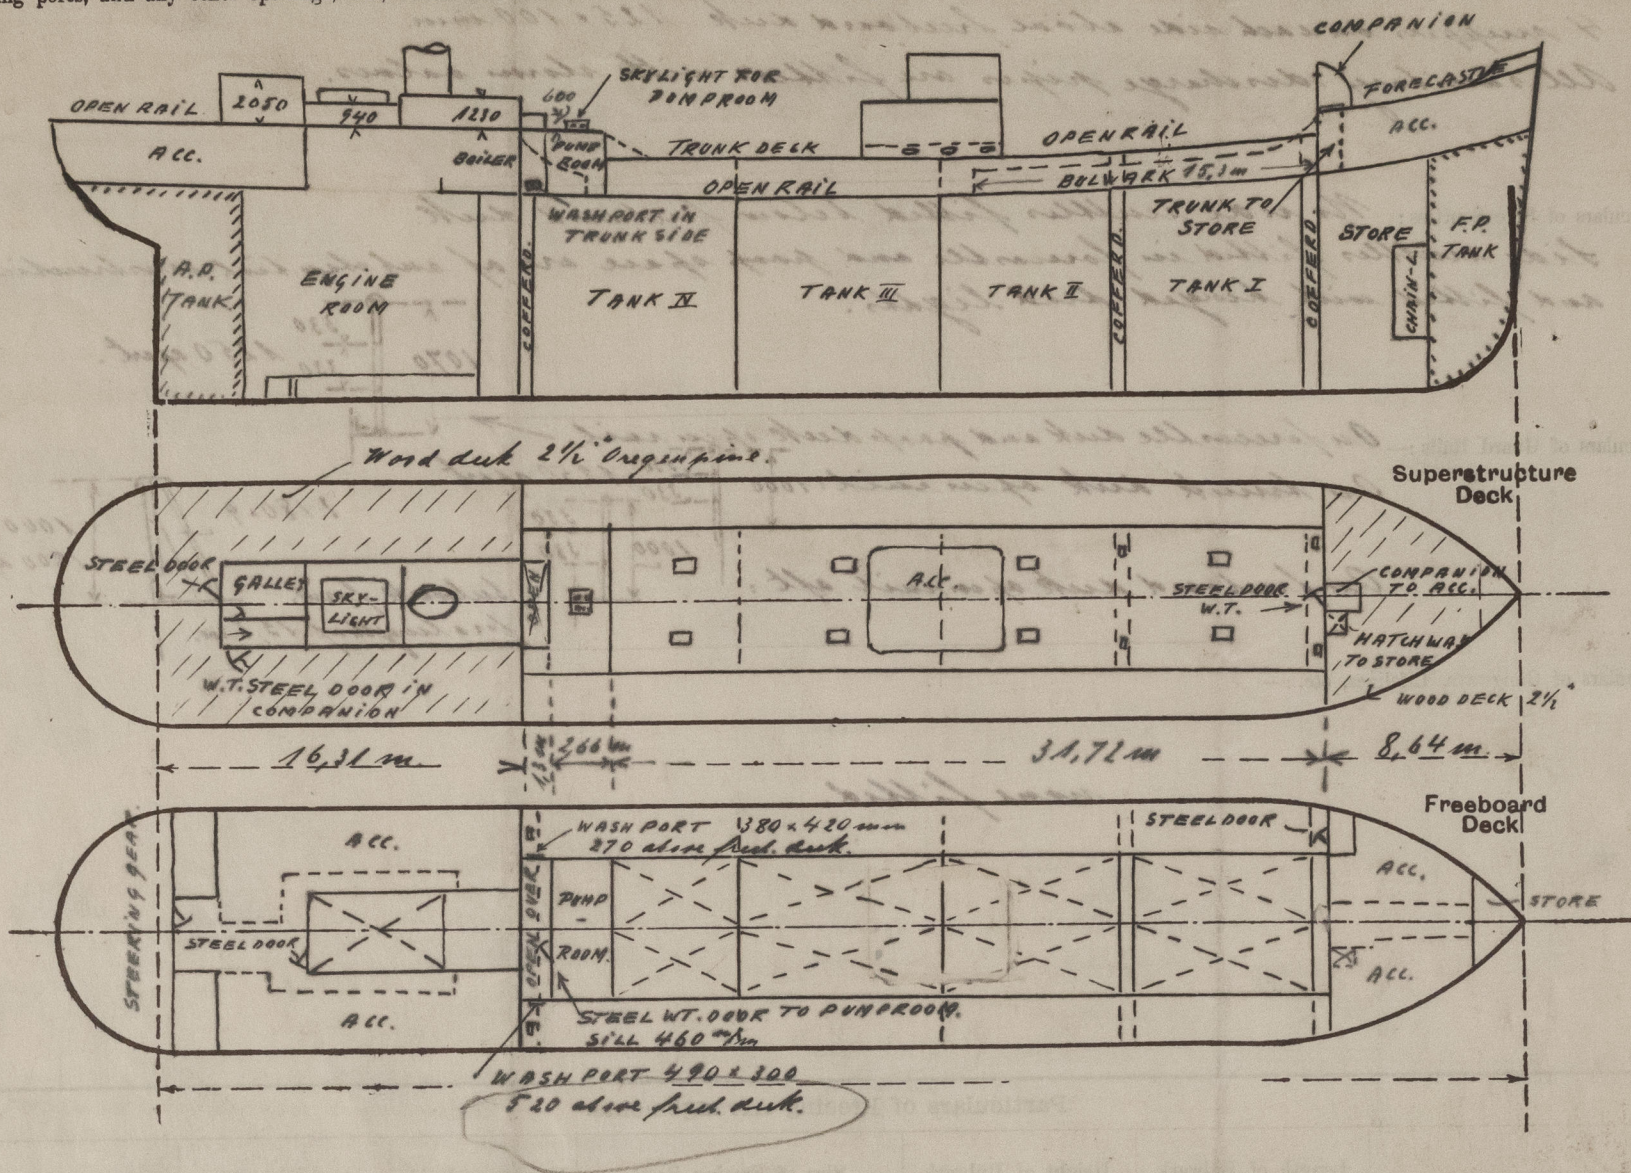 COMPANION
SKYLIGHT FOR
PUMPROOM
FORECASTLE
OPEN RAIL
2050
940
1230
600
ACC.
BOILER
PUMP
ROOM
TRUNK DECK
OPEN RAIL
ACC.
OPEN RAIL
BULWARK 15,3 m
WASHPORT IN
TRUNK SIDE
TRUNK TO
STORE
STORE
F.P.
TANK
A.P.
TANK
ENGINE
ROOM
COFFERD.
TANK IV
TANK III
TANK II
COFFERD.
TANK I
COFFERD.
CHAIN-L.
Wood deck 2½" Oregenpine.
Superstructure
Deck
STEEL DOOR
GALLEY
SKY-
LIGHT
OPEN
ACC.
STEEL DOOR
W.T.
COMPANION
TO ACC.
HATCHWAY
TO STORE
W.T. STEEL DOOR IN
COMPANION
WOOD DECK 2½"
16,31 m.
1,3 m
2,66 m
31,72 m
8,64 m.
Freeboard
Deck
STEERING GEAR.
ACC.
WASH PORT 380 x 420 mm
270 above freeb. deck.
STEELDOOR
ACC.
STORE
STEEL DOOR
OPEN OVER
PUMP
-
ROOM.
ACC.
ACC.
STEEL WT. DOOR TO PUMPROOM.
SILL 460 m/m
WASH PORT 490 x 300
520 above freeb. deck.